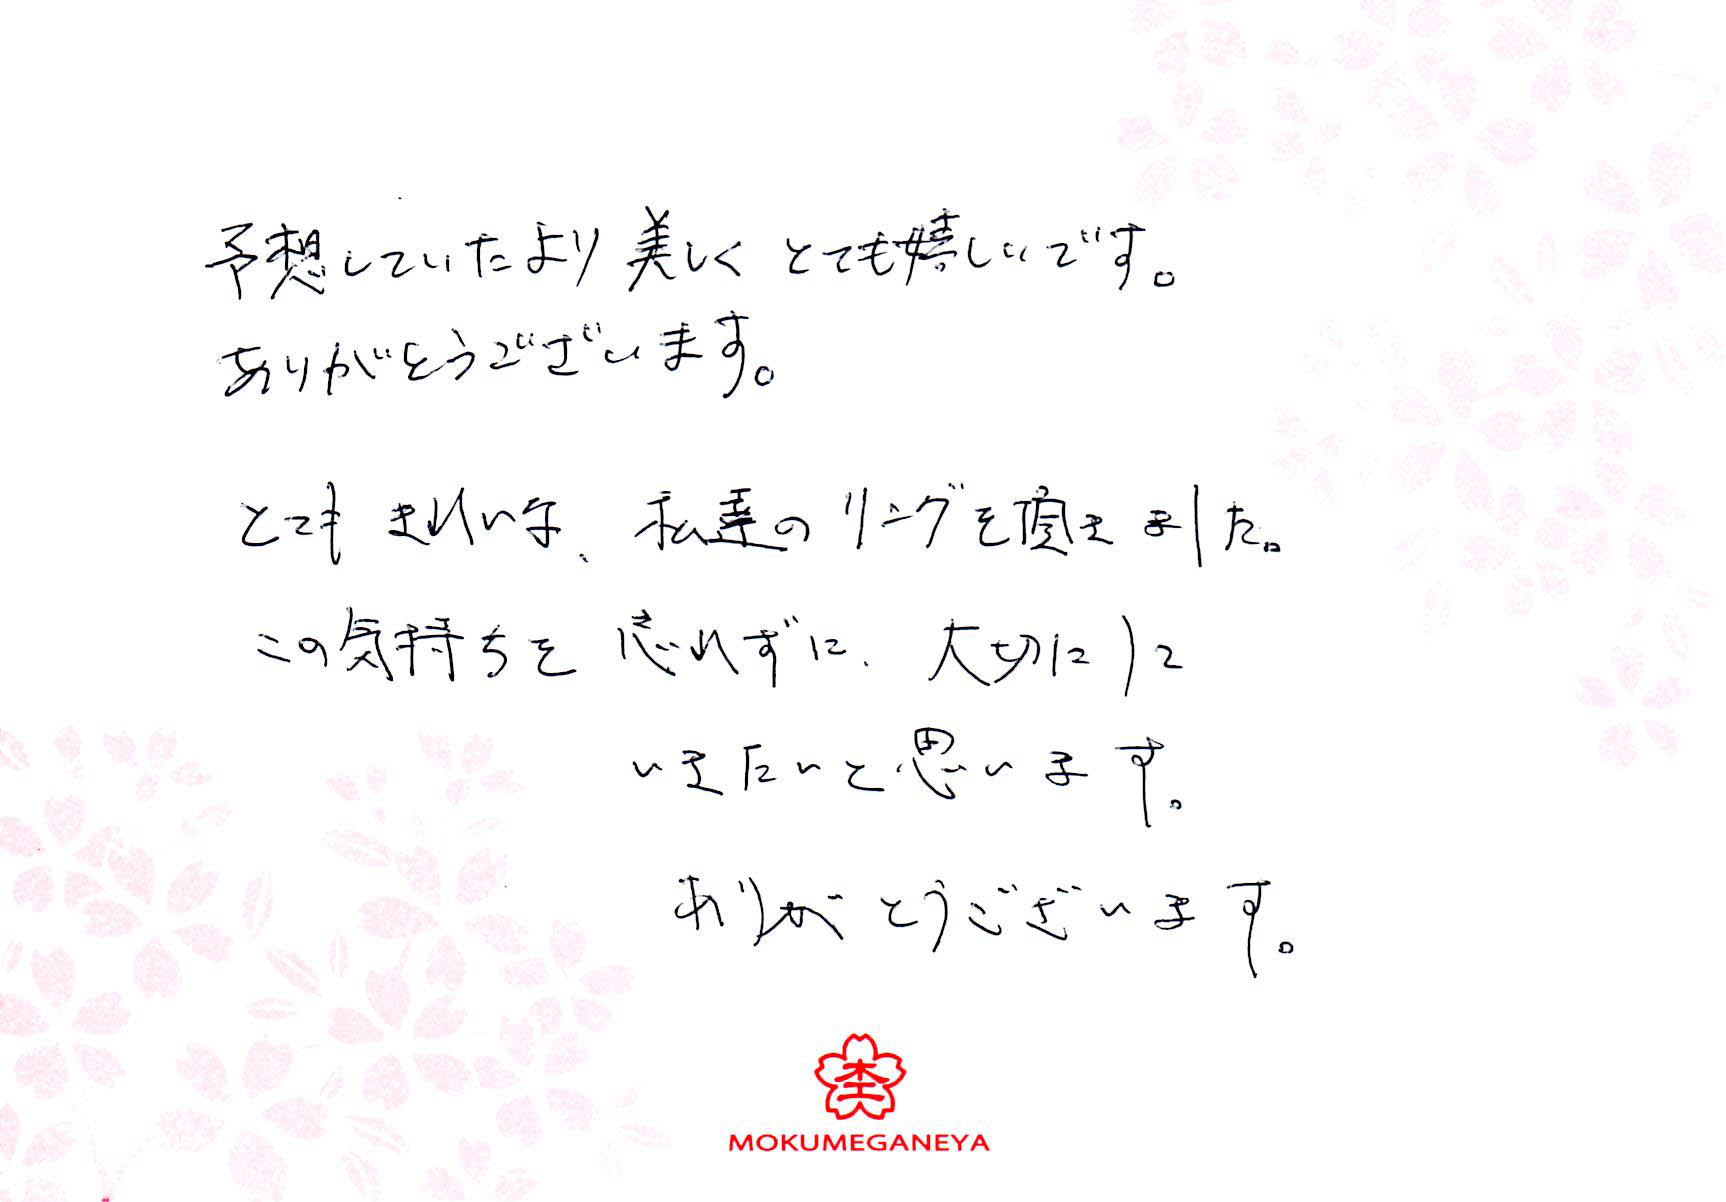 予想していたより美しくとても嬉しいです。
ありがとうございます。
とてもきれいな、私達のリングを頂きました。
この気持ちを忘れずに、大切にして
いきたいと思います。
ありがとうございます。
MOKUMEGANEYA